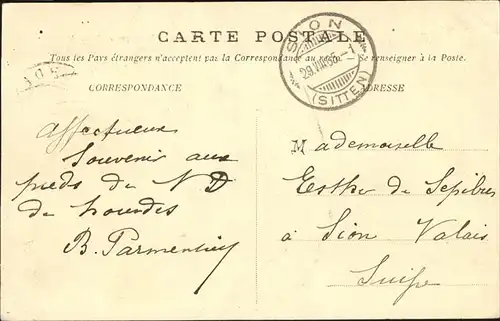 CARTE POSTALE
Tous les Pays étrangers n'acceptent par la Correspondance au Se renseigner à la Poste.
SION
29.VIII.05.-1
(SITTEN)
CORRESPONDANCE
ADRESSE
Affectueux
Souvenir aux
pieds de ND
de Lourdes
B. Parmentier
Mademoiselle
Esther de Sépibus
à Sion Valais
Suisse